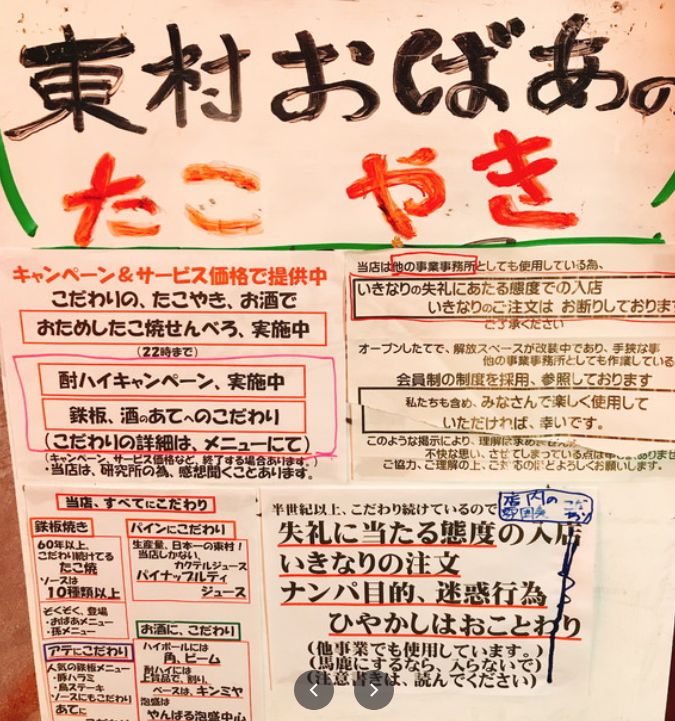 東村おばあの
たこ やき
キャンペーン&サービス価格で提供中
こだわりの、たこやき、お酒で
おためしたこ焼せんべろ、実施中
(22時まで)
酎ハイキャンペーン、実施中
鉄板、酒のあてへのこだわり
(こだわりの詳細は、メニューにて)
(キャンペーン、サービス価格など、終了する場合あります。)
・当店は、研究所の為、感想聞くことあります。
当店は他の事業事務所としても使用している為、
いきなりの失礼にあたる態度での入店
いきなりのご注文は お断りしております
ご了承ください
オープンしたてで、解放スペースが改装中であり、手狭な事
他の事業事務所としても作業している
会員制の制度を採用、参照しております
私たちも含め、みなさんで楽しく使用して
いただければ、幸いです。
このような掲示により、理解は求めません
不快な思い、させてしまっている点は申し
ご協力、ご理解の上、ご対応のほどよろしくお願いします。
当店、すべてにこだわり
鉄板焼き
60年以上、
こだわり続けてる
たこ焼
ソースは
10種類以上
ぞくぞく、登場
・おばあメニュー
・孫メニュー
アテにこだわり
人気の鉄板メニュー
・豚ハラミ
・鳥ステーキ
ソースにもこだわり
あてに
パインにこだわり
生産量、日本一の東村!
当店しかない、
カクテルジュース
パイナップルティ
ジュース
お酒に、こだわり
ハイボールには
角、ビーム
酎ハイには
上質品で、割り、
ベースは、キンミヤ
泡盛は
やんばる泡盛中心
半世紀以上、こだわり続けているので
店内の
雰囲気
失礼に当たる態度の入店
いきなりの注文
ナンパ目的、迷惑行為
ひやかしはおことわり
(他事業でも使用しています。)
(馬鹿にするなら、入らないで)
(注意書きは、読んでください)